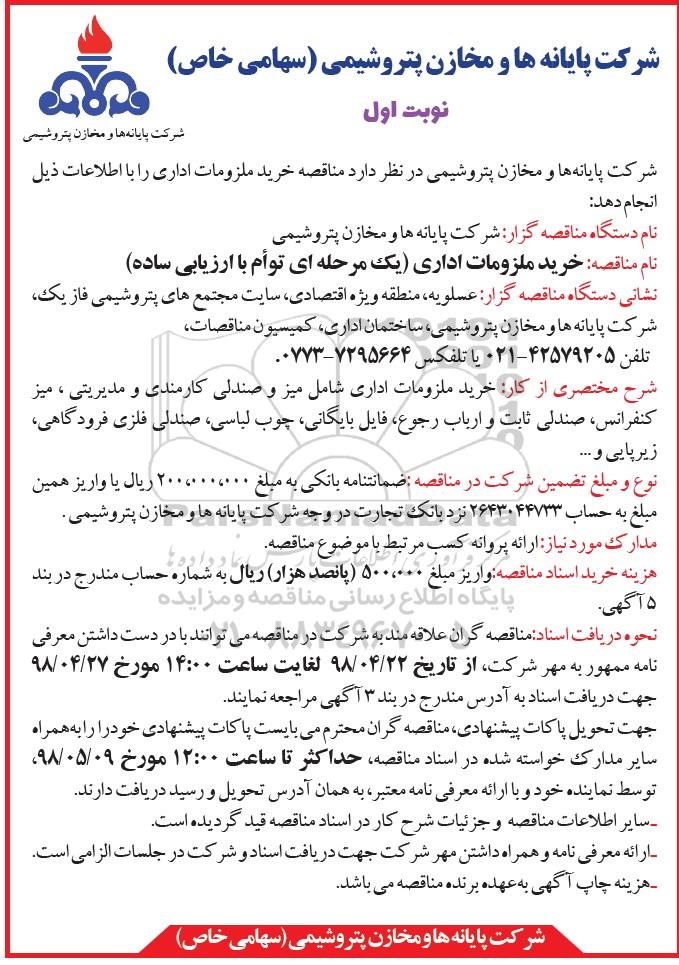 شرکت پایانه ها و مخازن پتروشیمی (سهامی خاص)
نوبت اول
شرکت پایانه‌ها و مخازن پتروشیمی
شرکت پایانه‌ها و مخازن پتروشیمی در نظر دارد مناقصه خرید ملزومات اداری را با اطلاعات ذیل
انجام دهد:
نام دستگاه مناقصه گزار: شرکت پایانه ها و مخازن پتروشیمی
نام مناقصه: خرید ملزومات اداری (یک مرحله ای توأم با ارزیابی ساده)
نشانی دستگاه مناقصه گزار: عسلویه، منطقه ویژه اقتصادی، سایت مجتمع های پتروشیمی فاز یک،
شرکت پایانه ها و مخازن پتروشیمی، ساختمان اداری، کمیسیون مناقصات،
تلفن ۴۲۵۷۹۲۰۵-۰۲۱ یا تلفکس ۷۲۹۵۶۶۴-۰۷۷۳.
شرح مختصری از کار: خرید ملزومات اداری شامل میز و صندلی کارمندی و مدیریتی ، میز
کنفرانس، صندلی ثابت و ارباب رجوع، فایل بایگانی، چوب لباسی، صندلی فلزی فرودگاهی،
زیرپایی و...
نوع و مبلغ تضمین شرکت در مناقصه :ضمانتنامه بانکی به مبلغ ۲۰۰،۰۰۰،۰۰۰ ریال یا واریز همین
مبلغ به حساب ۲۶۴۳۰۴۴۷۳۳ نزد بانک تجارت در وجه شرکت پایانه ها و مخازن پتروشیمی .
مدارک مورد نیاز: ارائه پروانه کسب مرتبط با موضوع مناقصه.
هزینه خرید اسناد مناقصه:واریز مبلغ ۵۰۰،۰۰۰ (پانصد هزار) ریال به شماره حساب مندرج در بند
۵ آگهی.
نحوه دریافت اسناد:مناقصه گران علاقه مند به شرکت در مناقصه می توانند با در دست داشتن معرفی
نامه ممهور به مهر شرکت، از تاریخ ۹۸/۰۴/۲۲ لغایت ساعت ۱۴:۰۰ مورخ ۹۸/۰۴/۲۷
جهت دریافت اسناد به آدرس مندرج در بند ۳ آگهی مراجعه نمایند.
جهت تحویل پاکات پیشنهادی، مناقصه گران محترم می بایست پاکات پیشنهادی خود را را به همراه
سایر مدارک خواسته شده در اسناد مناقصه، حداکثر تا ساعت ۱۲:۰۰ مورخ ۹۸/۰۵/۰۹،
توسط نماینده خود و با ارائه معرفی نامه معتبر، به همان آدرس تحویل و رسید دریافت دارند.
ـسایر اطلاعات مناقصه و جزئیات شرح کار در اسناد مناقصه قید گردیده است.
ـارائه معرفی نامه و همراه داشتن مهر شرکت جهت دریافت اسناد و شرکت در جلسات الزامی است.
ـهزینه چاپ آگهی به عهده برنده مناقصه می باشد.
پایگاه اطلاع رسانی مناقصه و مزایده
شرکت پایانه ها و مخازن پتروشیمی (سهامی خاص)